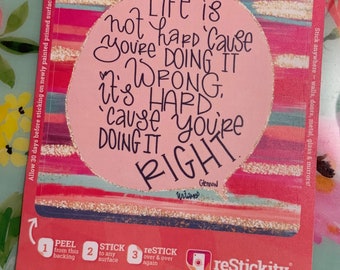 LIFE is
not hard 'cause
you're DOING IT
WRONG,
it's HARD
'cause you're
DOING IT
RIGHT
Allow 30 days before sticking on newly painted primed surfaces
Stick anywhere - walls, doors, metal, glass & mirrors!
1 PEEL
from this
backing
2 STICK
to any
surface
3 reSTICK
over & over
again
reStickity